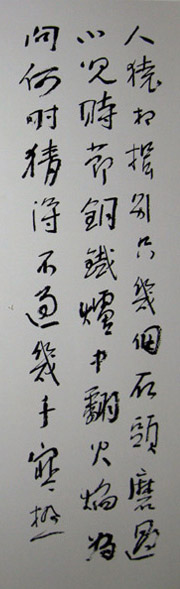 人猿相揖别只幾個石頭磨過
小兒時節銅鐵爐中翻火焰為
問何時猜得不過幾千寒熱